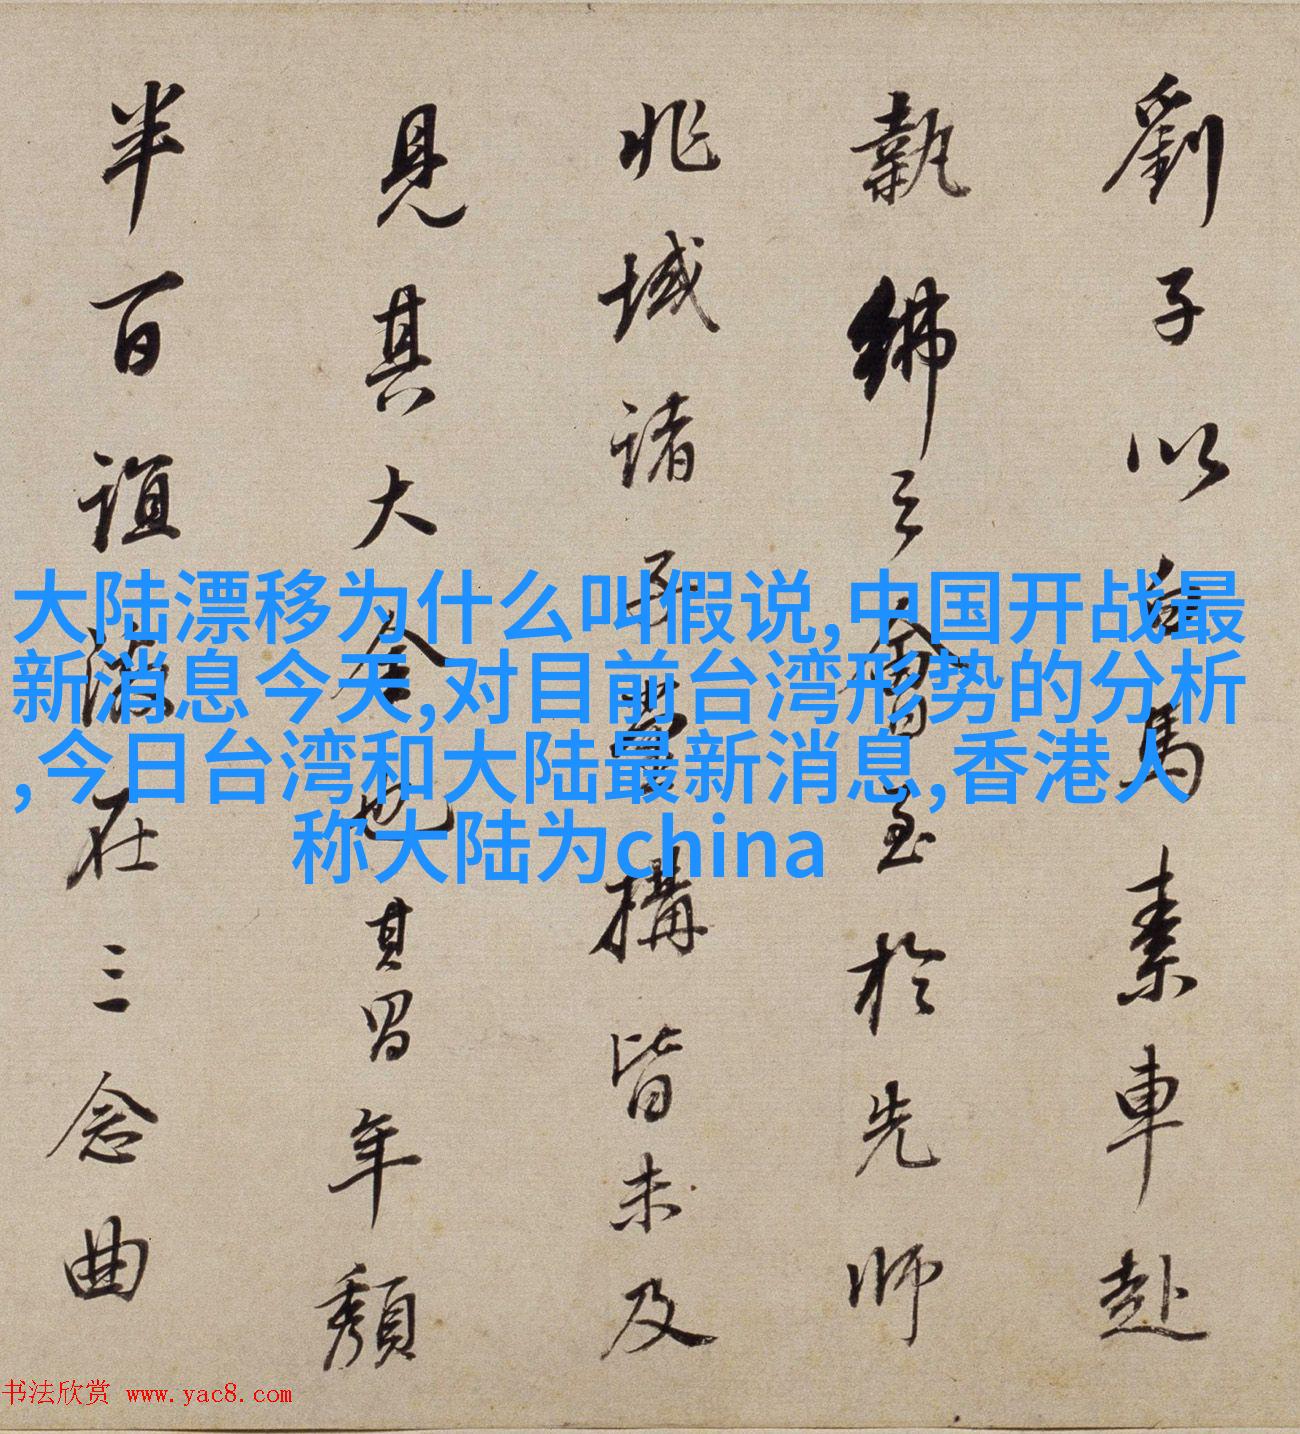 劉子以白馬素車赴
執紼之會至於先師
兆域諸子營構皆未及
見其大全也其眉年頹
半百誼激在三念曲
大陆漂移为什么叫假说,中国开战最
新消息今天,对目前台湾形势的分析
,今日台湾和大陆最新消息,香港人
称大陆为china
书法欣赏 www.yac8.com